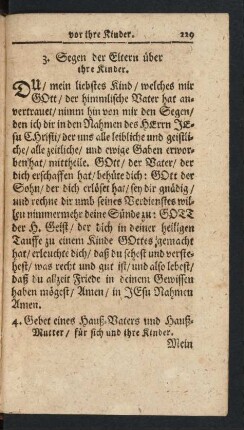 vor ihre Kinder. 229
3. Segen der Eltern über
ihre Kinder.
DU / mein liebstes Kind / welches mir
GOtt / der himmlische Vater hat an-
vertrauet / nimm hin von mir den Segen /
den ich dir in den Nahmen des HErrn JE-
su CHristi / der uns alle leibliche und geistli-
che / alle zeitliche / und ewige Gaben erwor-
ben hat / mittheile. GOtt / der Vater / der
dich erschaffen hat / behüte dich: GOtt der
Sohn / der dich erlöset hat / sey dir gnädig / und
rechne dir umb seines Verdienstes wil-
len nimmermehr deine Sünde zu: GOTT
der H. Geist / der dich in deiner heiligen
Tauffe zu einem Kinde GOttes gemacht
hat / erleuchte dich / daß du sehest und verste-
hest / was recht und gut ist / und also lebest /
daß du allzeit Friede in deinem Gewissen
haben mögest / Amen / in JEsu Nahmen
Amen.
4. Gebet eines Hauß-Vaters und Hauß-
Mutter / für sich und ihre Kinder.
Mein